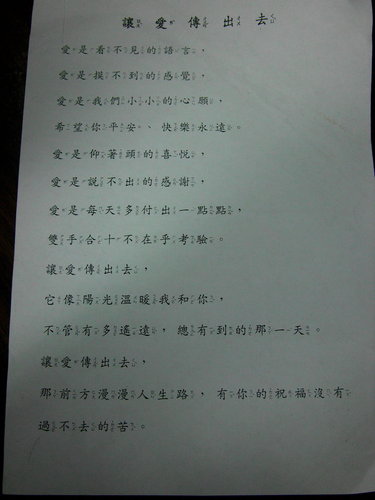 讓愛傳出去
愛是看不見的語言，
愛是摸不到的感覺，
愛是我們小小的心願，
希望你平安、快樂永遠。
愛是仰著頭的喜悅，
愛是說不出的感謝，
愛是每天多付出一點點，
雙手合十不在乎考驗。
讓愛傳出去，
它像陽光溫暖我和你，
不管有多遙遠，總有到的那一天。
讓愛傳出去，
那前方漫漫人生路，有你的祝福沒有
過不去的苦。